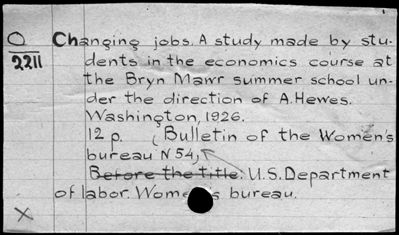 O
2211
Changing jobs. A study made by stu-
dents in the economics course at
the Bryn Mawr summer school un-
der the direction of A. Hewes.
Washington, 1926.
12 p. (Bulletin of the Women's
bureau N 54)
Before the title: U.S. Department
of labor. Women's bureau.
X